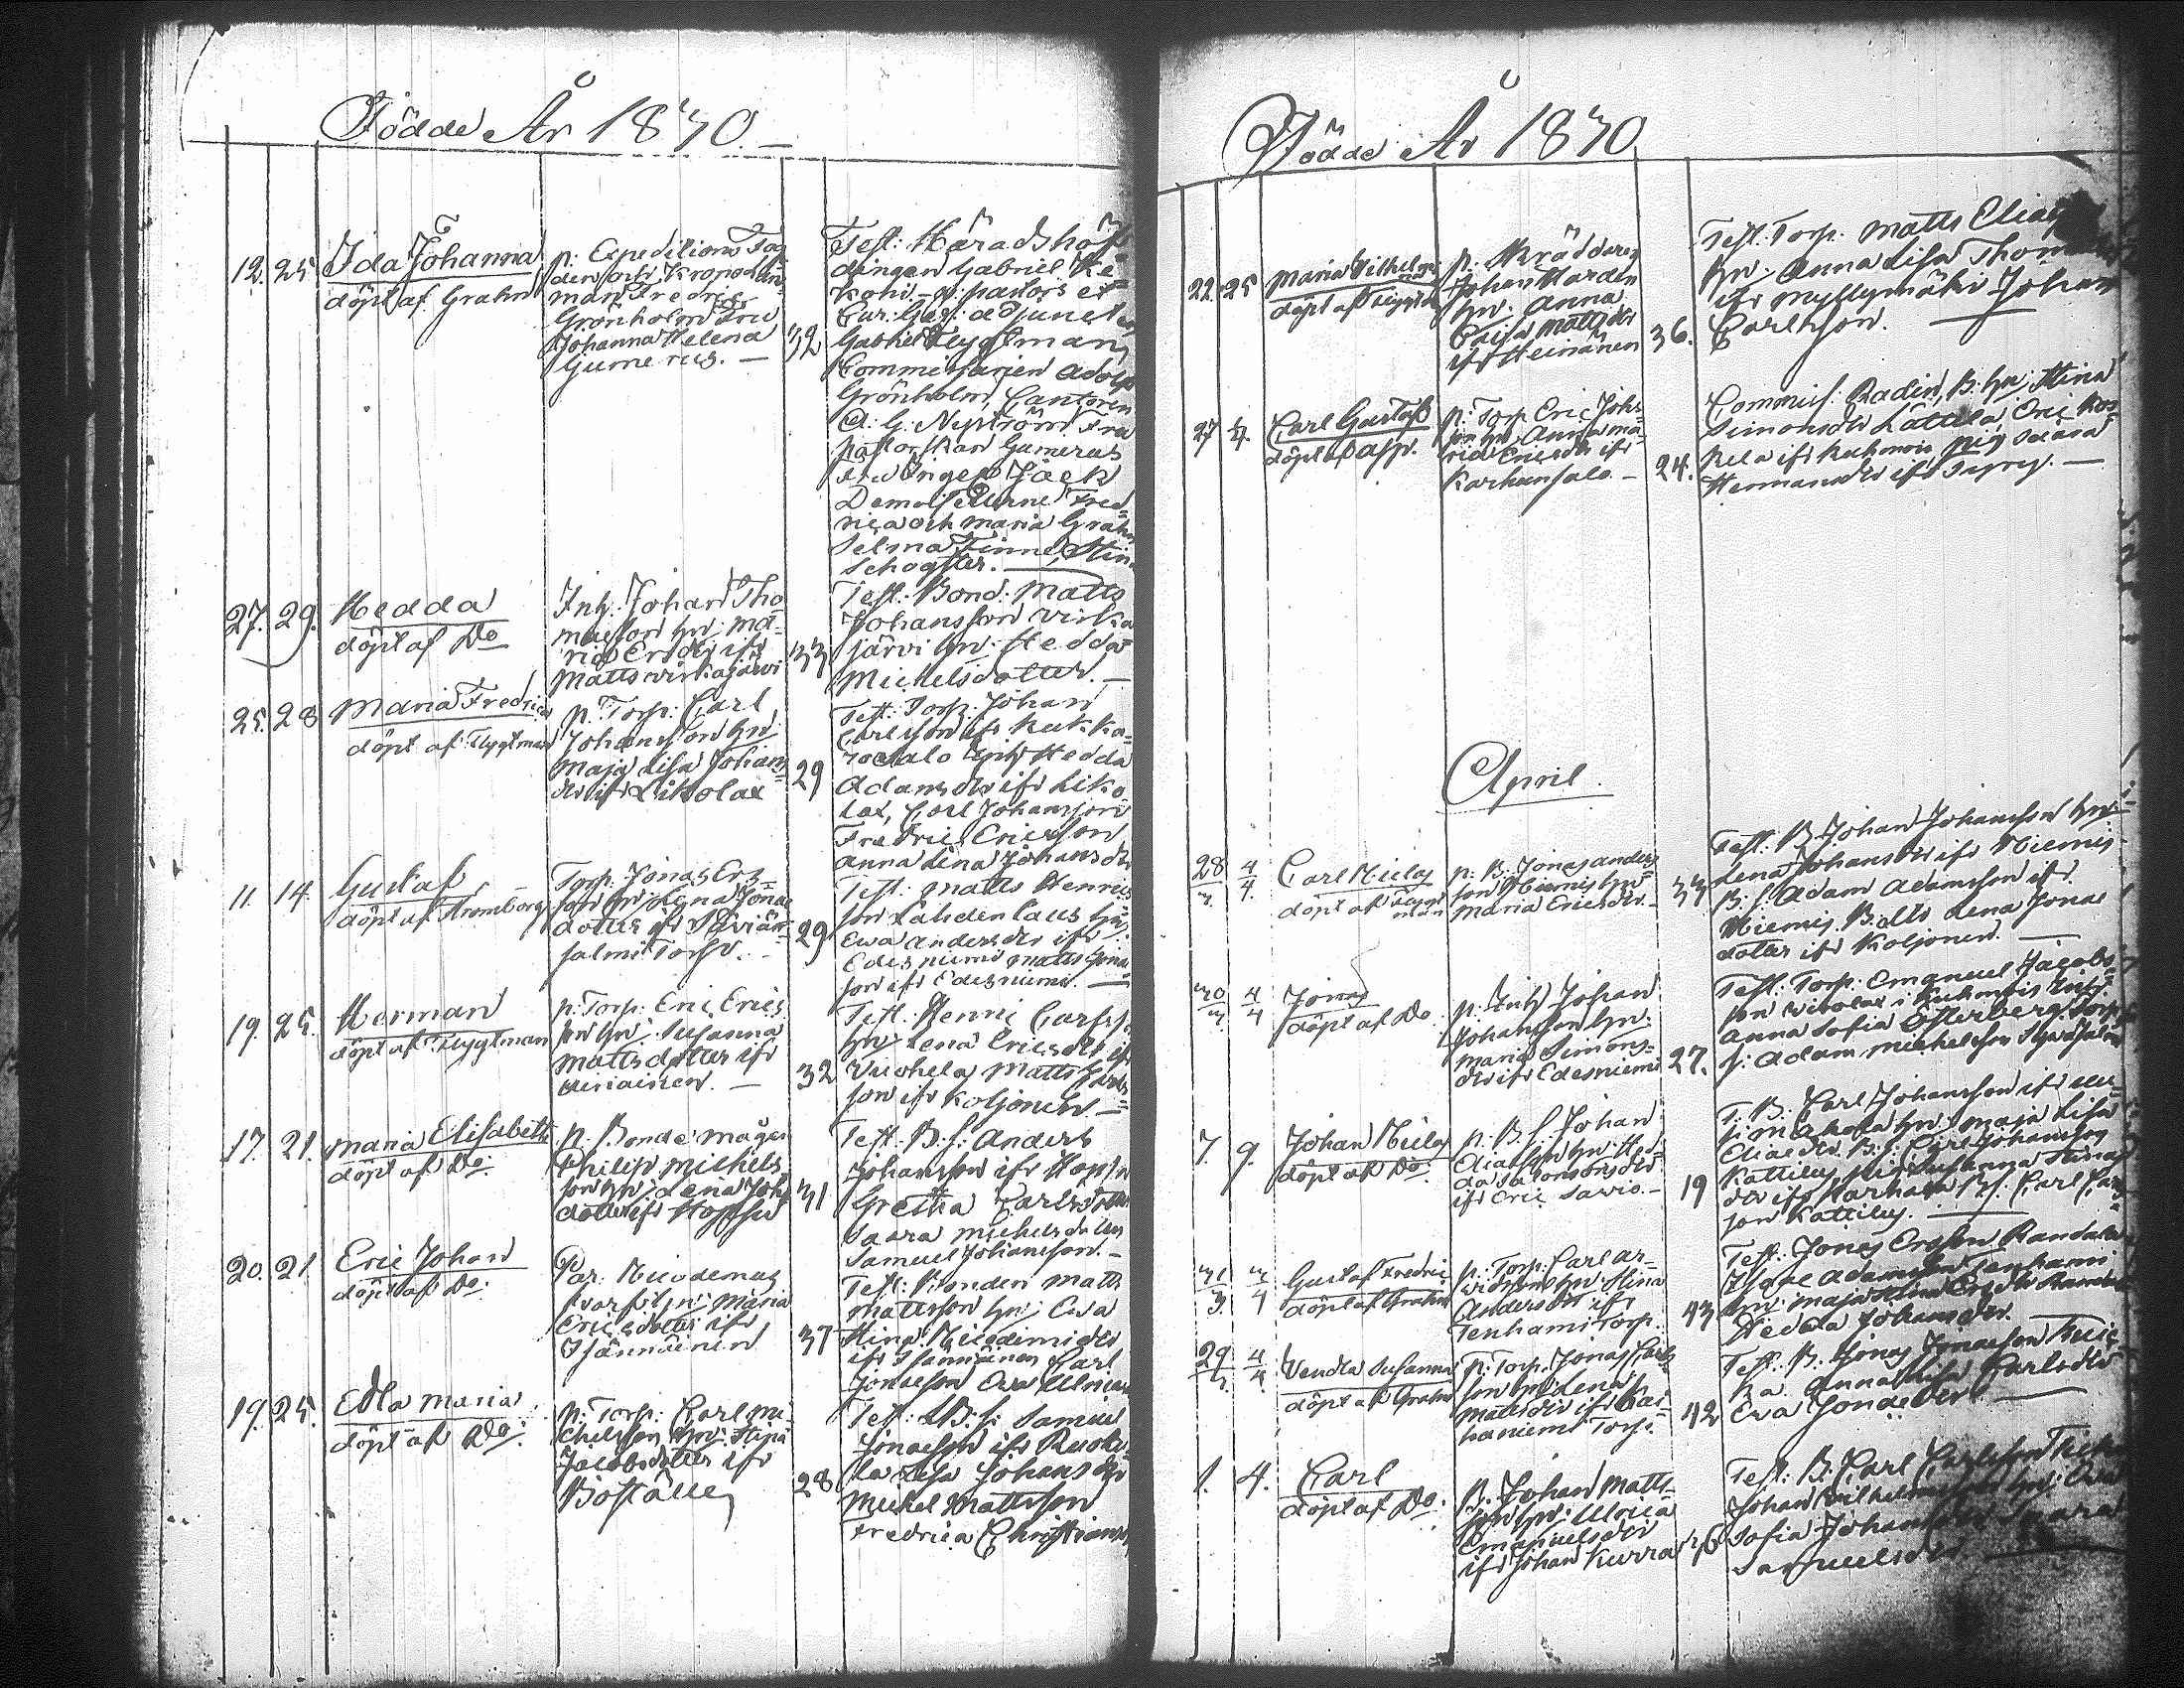 Födde År 1870.
12. 25 Ida Johanna
döpt af Grahn
p: Expeditions Fog
den och Kronolän
man Fredric
Grönholm Fru
Johanna Helena
Gumerus. —
32
Test: Häradshöf
dingen Gabriel Ke
koni
Gabriel Flygtman
Commisarien Adolf
Grönholm, Cantoren
C. G. Nyström Fru
pastorskan Gumerus
Fru Inger Jäck
Demoisellerne Fred-
rica och Maria Grahn
Selma Finne, Stina
Schogster. —
27. 29. Hedda
döpt af Do
Inh: Johan Tho
masson hu: Ma-
ria Ersdtr ifr
Matts Wirkajärvi
33
Test: Bond: Matts
Johansson Wirka
järvi hu: Hedda
Michelsdotter. —
25. 28 Maria Fredrica
döpt af Flygtman
p. Torp: Carl
Johansson hu
Maja Lisa Johans
dtr ifr Likolax
29
Test: Torp: Johan
Carlsson ifr Kukka-
rosalo Inh Hedda
Adamsdtr ifr Liko
lax, Carl Johansson
Fredric Ericsson
Anna Lina Johansdtr
11. 14. Gustaf
döpt af Stromborg
Torp: Jonas Ers-
son hu Lena Jonae
dotter ifr
salmi Torp. —
29
Test: Matts Henrics
son Lahdenlaus hu:
Ewa Andersdtr ifr
Edesniemi Matts Jona
son ifr Edesniemi. —
19. 25. Herman
döpt af Flygtman
p: Torp: Eric Erics
son hu: Susanna
Mattsdotter ifr
32
Test: Henric Carlss.
hu Lena Ericsdtr ifr
Matts Carls-
son ifr Koljonen. —
17. 21. Maria Elisabeth
döpt af Do:
p. Bonde mågen
Philip Michels
son hu: Lena Johs
dotter ifr Hopsu
31
Test: B. S: Anders
Johansson ifr Hopsu
Gretha Carlsdotter
Saara Michelsdotter
Samuel Johansson. —
20. 21 Eric Johan
döpt af Do:
Par: Nicodemus
hu: Maria
Ericsdotter ifr
37
Test: Bonden Matts
Mattsson hu: Ewa
Stina Nicodimidtr
Carl
Jonasson Ewa Ulrica
19. 25. Edla Maria
döpt af Do:
p: Torp: Carl Mi-
chelsson hu: Stina
Jacobsdotter ifr
Boställe
28
Test: B. S: Samuel
Jonasson ifr
Lisa Johansdtr
Mickel Mattsson
Fredrica Christians
Födde År 1870
22. 25 Maria Wilhelmina
döpt af Flygtm
p: Skräddaren
Johan Harden
hu: Anna
Caisa Mattsdtr
ifr Heinänen
36.
Test: Torp: Matts Elias
hu: Anna Lisa Thom
ifr Myllymäki Johan
Carlsson. —
27 4. Carl Gustaf
döpt af Asp.
p: Torp Eric Johs-
son hu: Anna Ma-
ria Ericsdtr ifr
Karhunsalo. —
24.
Commiss: Radin, B: hu: Stina
Simonsdtr Lattila Eric Kos-
kela ifr Kuhmois pig Saara
Hermansdtr ifr —
April.
28/3 4/4 Carl Niclas
döpt af Flygt
man
p: B: Jonas Anders
son Niemis hu:
Maria Ericsdtr. —
33
Test: B. Johan Johansson hu:
Lena Johansdtr ifr Niemis
B: S: Adam Adamsson ifr
Niemis B: dtr Lena Jonae
dotter ifr Koljonen. —
30/3 4/4 Jonas
döpt af Do
p: Inh Johan
Johansson hu:
Maria Simons-
dtr ifr Edesniemi
27.
Test: Torp: Emanuel Jacobs-
son i Kuhmois Inh:
Anna Sofia Österberg Torp
s: Adam Michelsson
7. 9. Johan Niclas
döpt af Do:
p: B. S Johan
Eliasson hu: Hed
da Salomonsdtr
ifr Eric Savio. —
19
T: B: Carl Johansson ifr
hu: Maja Lisa
Eliaedtr B: S: Carl Johansson
Kattilus pig Susanna Stina
B: S: Carl Carls
son Kattilus. —
31/3 3/4 Gustaf Fredric
döpt af Grahn
p: Torp: Carl Ar-
vidsson hu: Stina
Andersdtr ifr
Tenhami Torp.
43
Test: Jonas Ersson Randala
Adamsson Tenhami
hu: Maja Stina Ersdtr
Hedda Johansdtr.
29/3 4/4 Vendla Susanna
döpt af Grahn
p: Torp: Jonas Carls
son hu: Lena
Mattsdtr ifr Kai-
haniemi Torp.
42
Test: B. Jonas Jonasson
Anna Lisa Carlsdtr
Ewa Jonaedtr. —
1. 4. Carl
döpt af Do:
B: Johan Matts-
son hu: Ulrica
Emanuelsdtr
ifr Johan Kurra
36
Test: B: Carl Carlsson
Johan Wilhelmsson hu: Ewa
Sofia Johansdtr Saara
Samuelsdtr